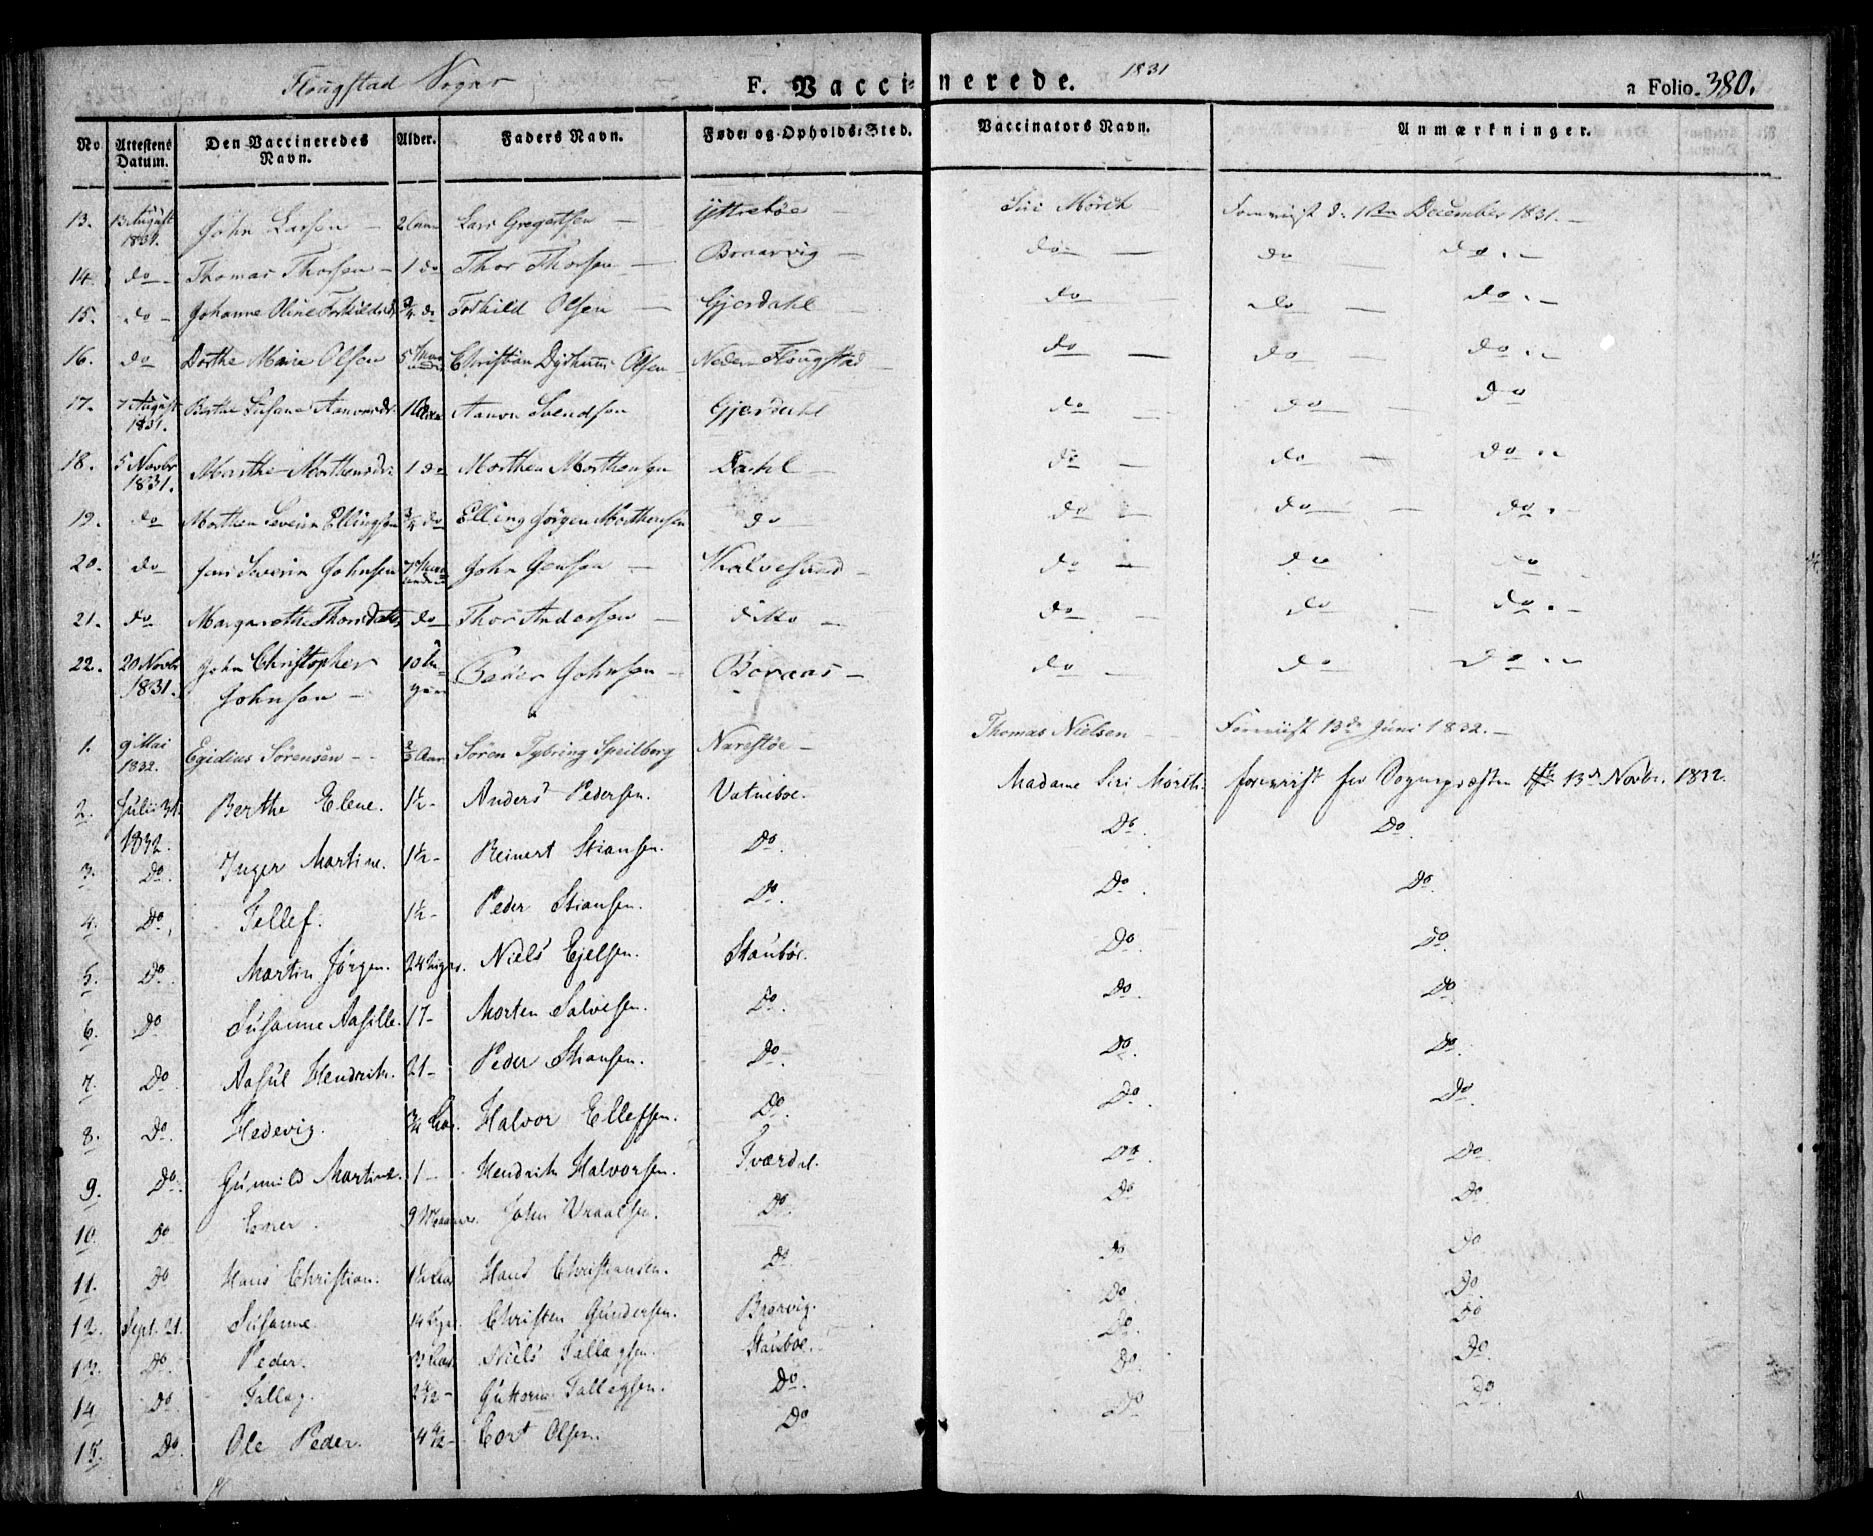 Flougstad Sogns F. Vaccinerede. 1831 a Folio 380.
No Attestens Datum. Den Vaccineredes Navn. Alder. Faders Navn. Føde- og Opholds-Sted. Vaccinators Navn. Anmærkninger.
13. 13 August 1831. John Larsen 2 Lars Gregertsen Yttrebøe Siri Mörch Foreviist d. December 1831.
14. do Thomas Thorsen 1 do Thor Thorsen Braarvig do do do
15. do Johanne Oline 3/4 do Torkild Olsen Gjerdahl do do do
16. do Dorthe Marie Olsen 5 Christian Olsen Neder Flougstad do do do
17. 7 August 1831. Berthe Susane 1 Aanon Svendsen Gjerdahl do do do
18. 5 Novbr 1831. Marthe Morthensdr: 1 do Morthen Morthensen Dahl do do do
19. do Morthen Severin Ellingsen 3/4 do Elling Jörgen Morthensen do do do do
20. do Jens Severin Johnsen 7 John Jensen Kalvesund do do do
21. do Margarethe do Thor Andersen ditto do do do
22. 20 Novbr 1831. John Christopher Johnsen 10 Peder Johnsen Boraas do do do
1. 9 Mai 1832. Egidius Sørensen 2/3 Aar Sören Tybring Speilberg Narestøe Thomas Nielsen Foreviist 13de Juni 1832.
2. Julii 31 1832. Berthe Elene. 1½ Anders Pedersen. Vatneboe. Madame Siri Mörch. foreviist for Sognepræsten 13d Novbr. 1832.
3. Do. Inger Martine. 1½ Reinert Stiansen. Do. Do. Do.
4. Do. Tellef. 1½ Peder Stiansen. Do. Do. Do.
5. Do. Martin Jörgen. 24 Uger. Niels Ejelsen. Staubör. Do. Do.
6. Do Susanne Aasille. 17 Morten Salvesen. Do. Do. Do.
7. Do Aasul Hendrik. 21 Peder Stiansen. Do. Do. Do.
8. Do. Hedevig. 3/4 Aar. Halvor Ellefsen. Do. Do. Do.
9. Do. Gunnild Martine. 1 Hendrik Halvorsen. Tværdal. Do. Do.
10. Do 9 John Do. Do Do
11. Do Hans Christian. 1½ Aar Hans Christiansen. Do Do Do
12. Sept. 21. Susanne. 14 Uger Christen Gundersen. Brorvig. Do. Do.
13. Do. Peder. 3 Aar. Niels Tallagsen. Stauboe. Do. Do
14 Do Tallag. 2½ Guttorm Tallegsen. Do. Do. Do.
15. Do. Ole Peder. 4½ Cort Olsen. Do Do Do